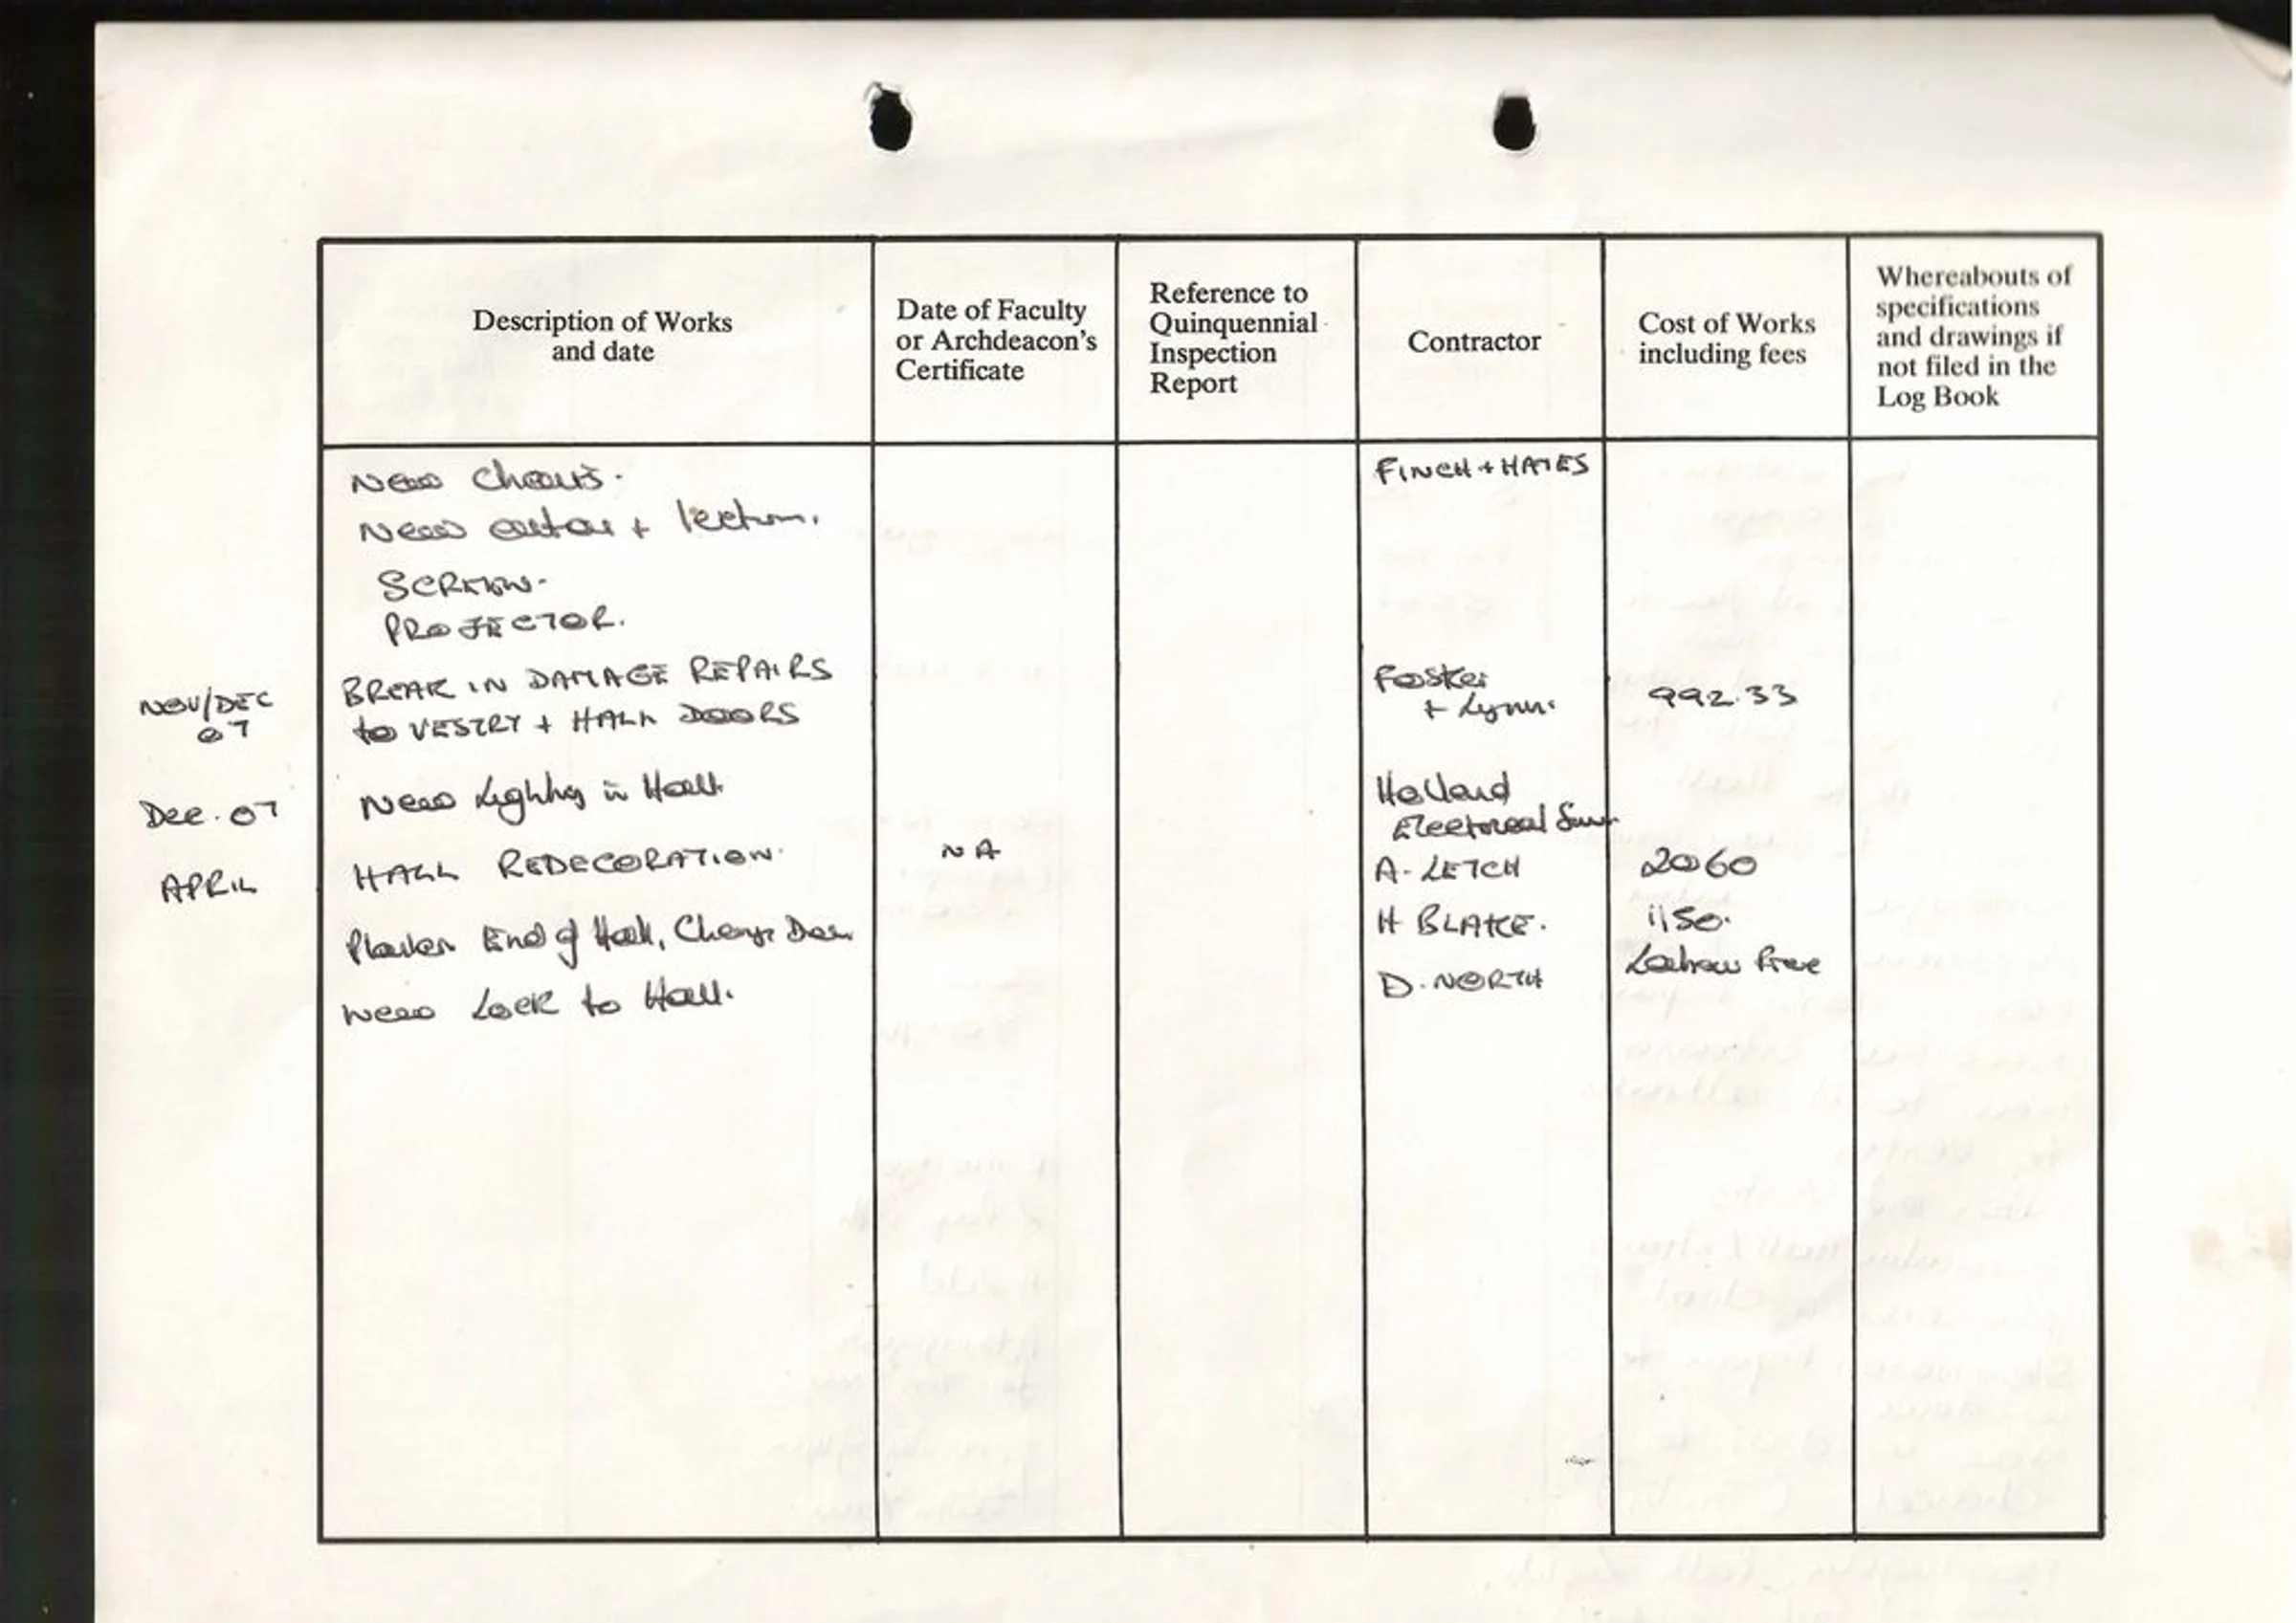 Description of Works
and date
Date of Faculty
or Archdeacon's
Certificate
Reference to
Quinquennial
Inspection
Report
Contractor
Cost of Works
including fees
Whereabouts of
specifications
and drawings if
not filed in the
Log Book
New chairs.
FINCH + HAYES
New altar + lectern.
SCREEN.
PROJECTOR.
NOV/DEC
07
BREAK IN DAMAGE REPAIRS
to VESTRY + HALL DOORS
Foster
+ Lynn.
992.33
Dec. 07
New Lighting in Hall.
Holland
Electrical
APRIL
HALL REDECORATION.
NA
A. LETCH
2060
Plaster End of Hall, Change Door
H BLAKE.
1150.
New Lock to Hall.
D. NORTH
Labour free